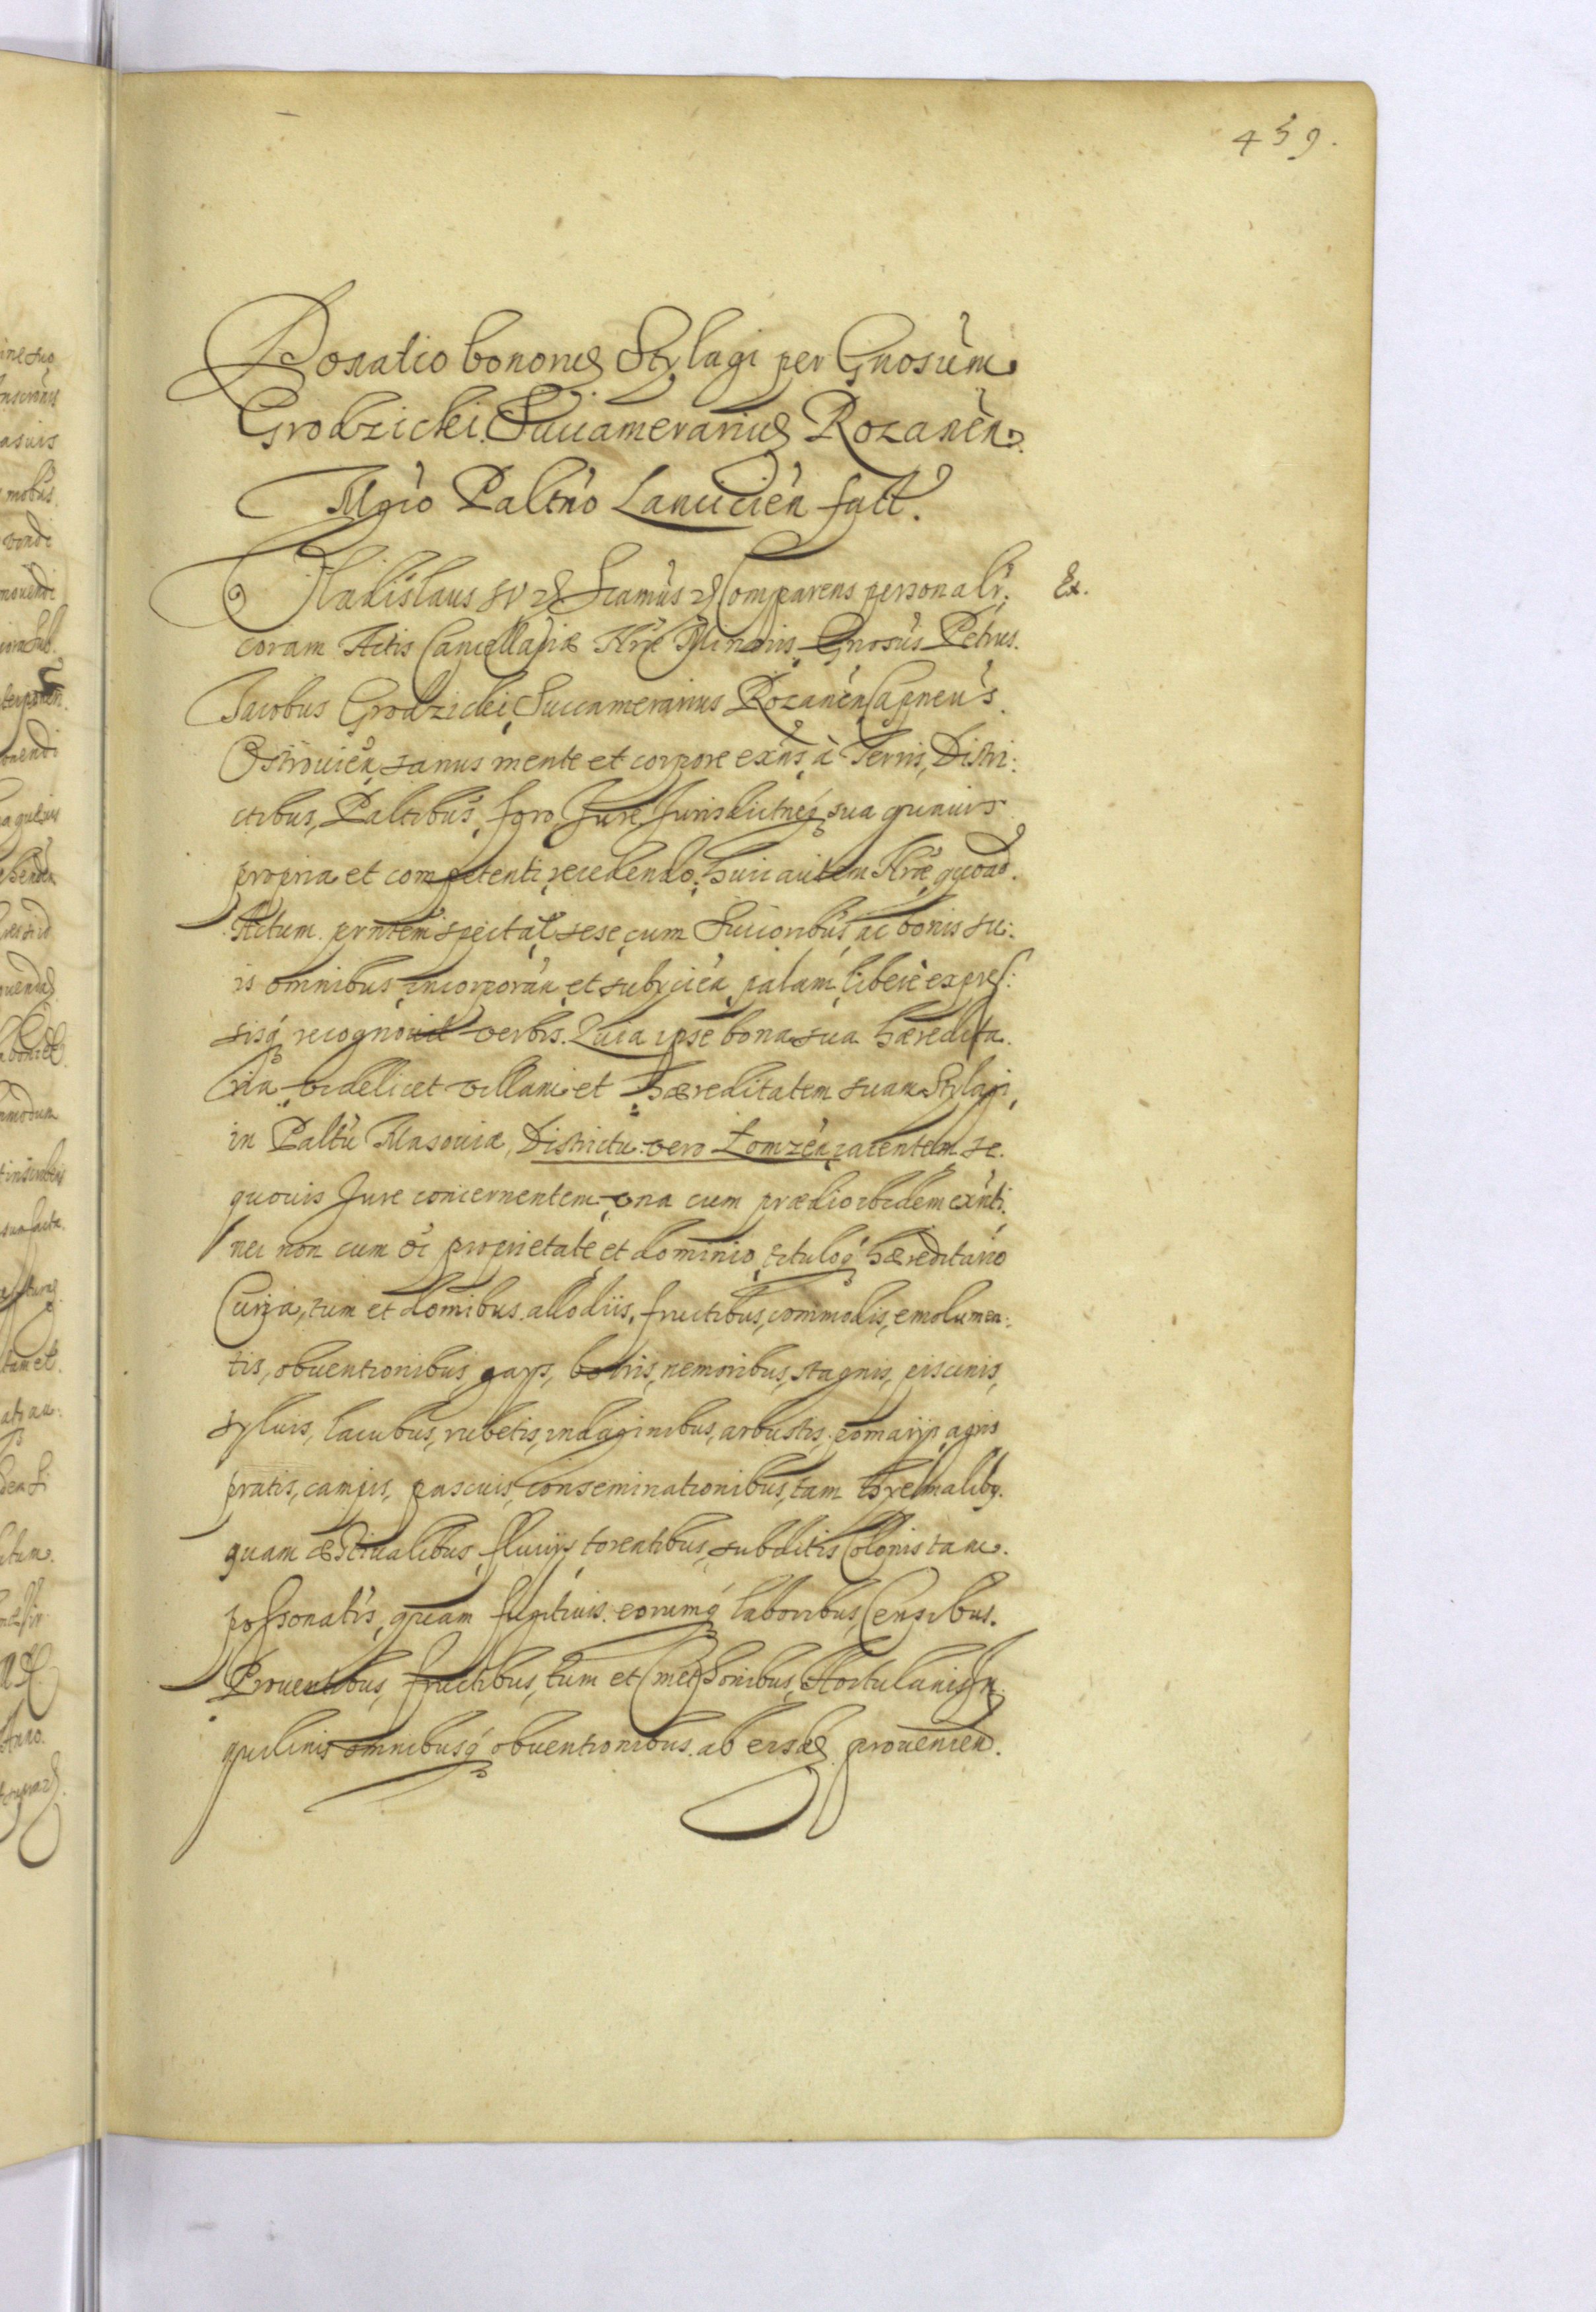 459.
Donatio bonorum Stylagi per Gnosum
Grodzicki Succamerarium Rozanen
Mgco Paltno Lancicien fact.
Vladislaus IV etc Seamus etc Comparens personalr. Ex.
coram Actis Cancellariæ Hræ Minoris Gnosus Petrus
Jacobus Grodzicki Succamerarius Rozanen Capneus
Ostrovien sanus mente et corpore exns, à Terris, Distri:
ctibus, Paltibus, foro Jure Jurisdictneq sua quavis
propria et competenti recedendo, huic autem Hræ quoad
Actum prntem spectat sese cum Succoribus ac bonis su:
is omnibus incorporan et subijcien palam liberè expres:
sisq recognovit verbis. Quia ipse bona sua hæredita
ria videlicet villam et hæreditatem suam Stylagi,
in Paltu Masoviæ, Districtu vero Łomzen iacentem se
quovis Jure concernentem, una cum prædio ibidem exnti,
nec non cum oi proprietate et dominio, tituloq hæreditario
Curia, tum et domibus allodiis, fructibus, commodis, emolumen:
tis, obventionibus gays, borris, nemoribus, stagnis, piscinis,
sylvis, lacubus, rubetis, indaginibus, arbustis, pomarijs, agris
pratis, campis, pascuis, conseminationibus, tam hyemalibq
quam æstivalibus, fluvijs, torentibus, subditis Colonis tam
possonatis, quam fugitivis eorumq laboribus, Censibus.
Proventibus, fructibus, tum et Hortulanis In
quilinis omnibusq obventionibus ab eisdem provenien.